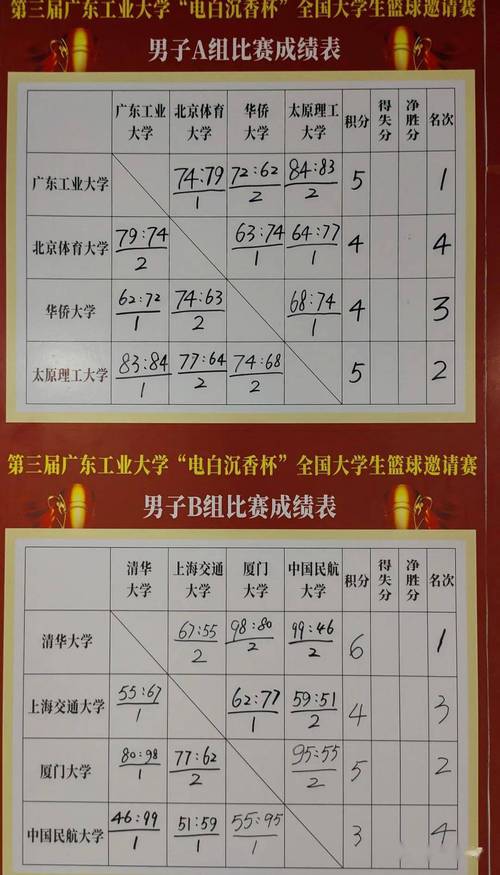 第三届广东工业大学“电白沉香杯”全国大学生篮球邀请赛
男子A组比赛成绩表
广东工业大学 北京体育大学 华侨大学 太原理工大学 积分 得失分 净胜分 名次
广东工业大学 74:79 1 72:62 2 84:83 2 5 1
北京体育大学 79:74 2 63:74 1 64:77 1 4 4
华侨大学 62:72 1 74:63 2 68:74 1 4 3
太原理工大学 83:84 1 77:64 2 74:68 2 5 2
第三届广东工业大学“电白沉香杯”全国大学生篮球邀请赛
男子B组比赛成绩表
清华大学 上海交通大学 厦门大学 中国民航大学 积分 得失分 净胜分 名次
清华大学 67:55 2 98:80 2 99:46 2 6 1
上海交通大学 55:67 1 62:77 1 59:51 2 4 3
厦门大学 80:98 1 77:62 2 95:55 2 5 2
中国民航大学 46:99 1 51:59 1 55:95 1 3 4